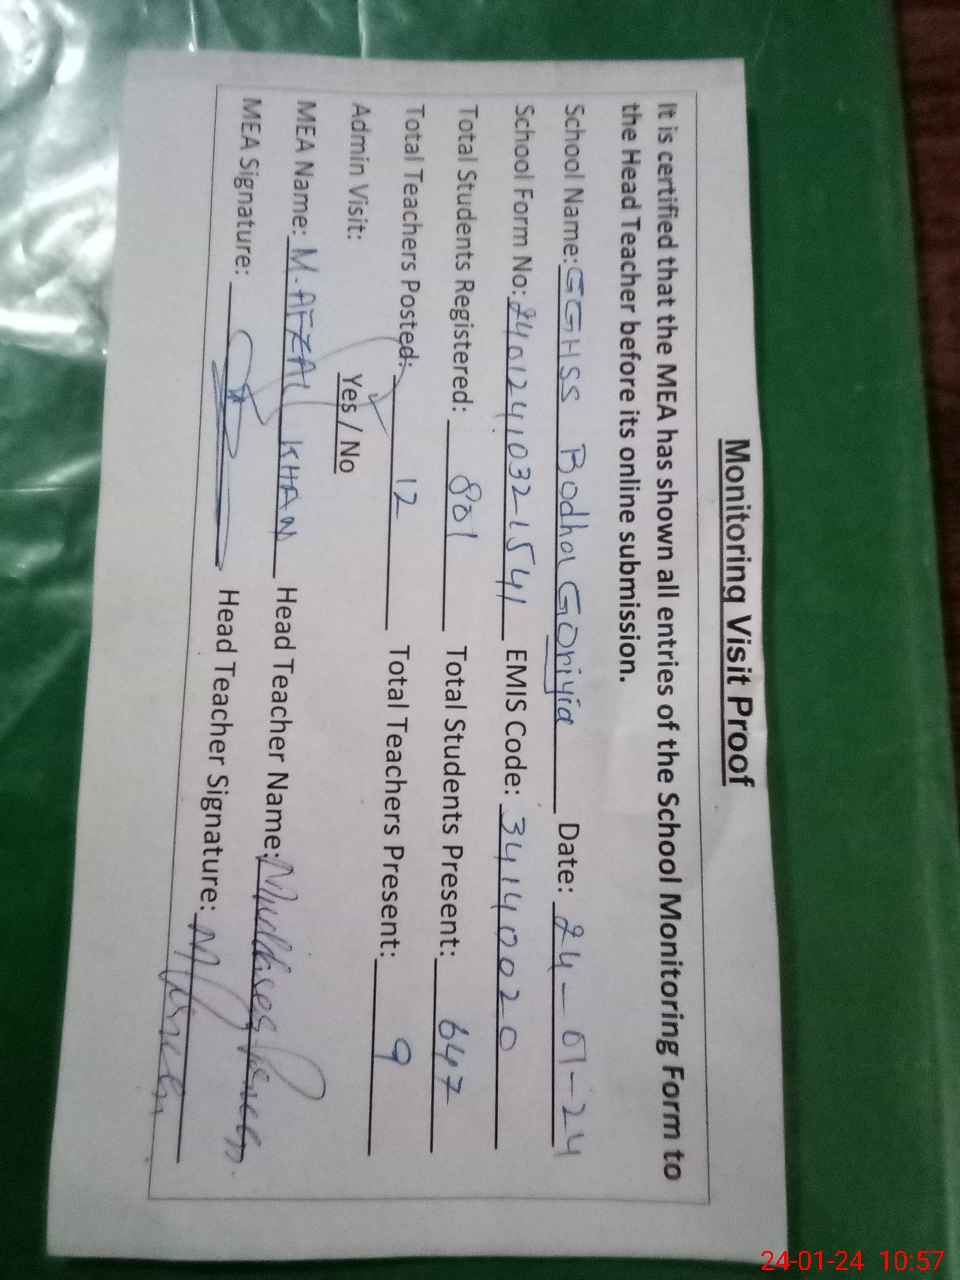 Monitoring Visit Proof
It is certified that the MEA has shown all entries of the School Monitoring Form to
the Head Teacher before its online submission.
School Name: GGHSS Bodhal Goriyia Date: 24-01-24
School Form No: 240124,0321541 EMIS Code: 34140020
Total Students Registered: 801 Total Students Present: 647
Total Teachers Posted: 12 Total Teachers Present: 9
Admin Visit: Yes / No
MEA Name: M. AFZAL KHAN Head Teacher Name:
MEA Signature: Head Teacher Signature:
24-01-24 10:57